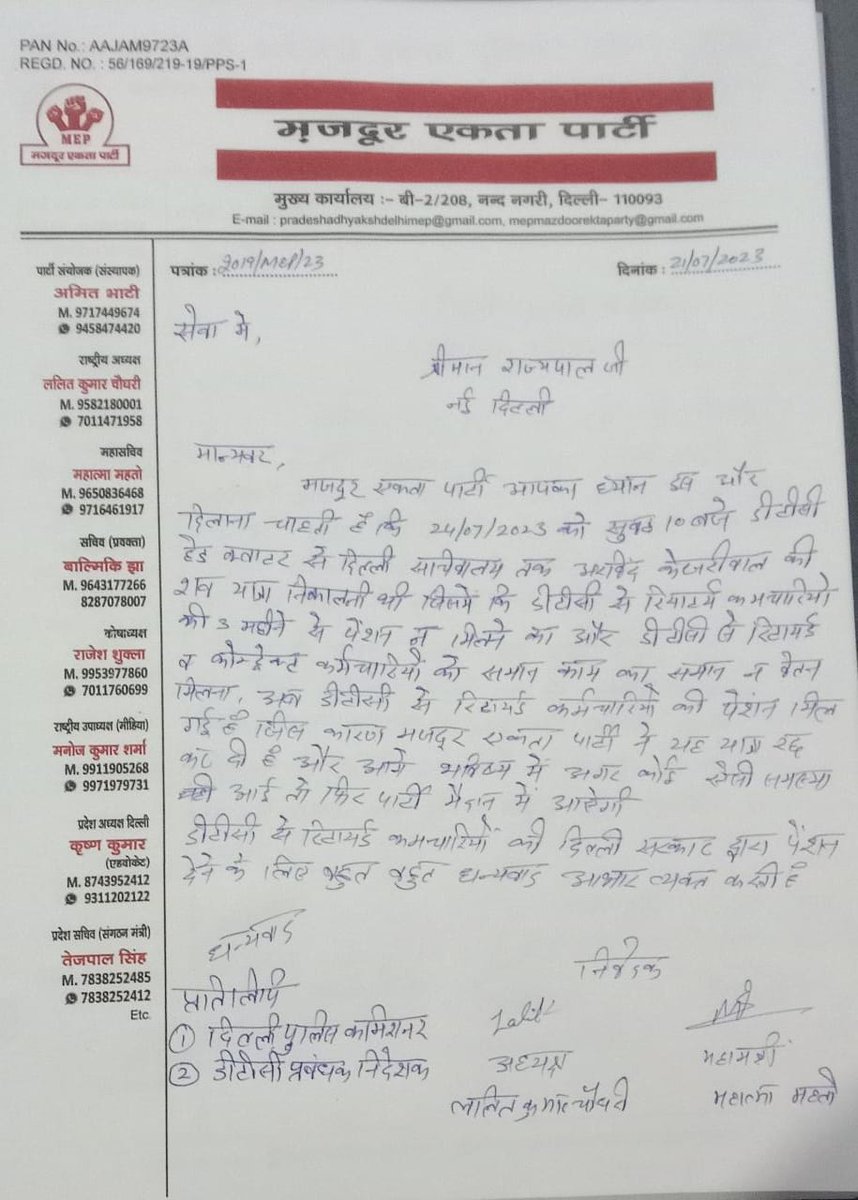 PAN No.: AAJAM9723A
REGD. NO. : 56/169/219-19/PPS-1
MEP
मजदूर एकता पार्टी
मज़दूर एकता पार्टी
मुख्य कार्यालय :– बी–2/208, नन्द नगरी, दिल्ली– 110093
E-mail : pradeshadhyakshdelhimep@gmail.com, mepmazdoorektaparty@gmail.com
पार्टी संयोजक (संस्थापक)
अमित भाटी
M. 9717449674
9458474420
राष्ट्रीय अध्यक्ष
ललित कुमार चौधरी
M. 9582180001
7011471958
महासचिव
महात्मा महतो
M. 9650836468
9716461917
सचिव (प्रवक्ता)
बाल्मिकि झा
M. 9643177266
8287078007
कोषाध्यक्ष
राजेश शुक्ला
M. 9953977860
7011760699
राष्ट्रीय उपाध्यक्ष (मीडिया)
मनोज कुमार शर्मा
M. 9911905268
9971979731
प्रदेश अध्यक्ष दिल्ली
कृष्ण कुमार
(एडवोकेट)
M. 8743952412
9311202122
प्रदेश सचिव (संगठन मंत्री)
तेजपाल सिंह
M. 7838252485
7838252412
Etc.
पत्रांक : 2019/MEP/23
दिनांक : 21/07/2023
सेवा में,
श्रीमान राज्यपाल जी
नई दिल्ली
मान्यवर,
मजदूर एकता पार्टी आपका ध्यान इस और
दिलाना चाहती है कि 24/07/2023 को सुबह 10 बजे डीटीसी
हेड क्वाटर से दिल्ली सचिवालय तक अरविंद केजरीवाल की
शव यात्रा निकालनी थी जिसमें कि डीटीसी से रिटायर्ड कर्मचारियो
की 3 महीने से पेंशन न मिलने का और डीटीसी से रिटायर्ड
व कोन्ट्रेक्ट कर्मचारियो को समान काम का समान न वेतन
मिलना, अब डीटीसी से रिटायर्ड कर्मचारियो की पेंशन मिल
गई है जिस कारण मजदूर एकता पार्टी ने यह यात्रा रद्द
कर दी है और आगे भविष्य में अगर कोई ऐसी समस्या
आई तो फिर पार्टी मैदान में आयेगी
डीटीसी से रिटायर्ड कर्मचारियों की दिल्ली सरकार द्वारा पेंशन
देने के लिए बहुत बहुत धन्यवाद आभार व्यक्त करती है
धन्यवाद
निवेदक
प्रतिलिपि
① दिल्ली पुलिस कमिशनर
② डीटीसी प्रबंधक निदेशक
Lalit
अध्यक्ष
ललित कुमार चौधरी
महामंत्री
महात्मा महतो